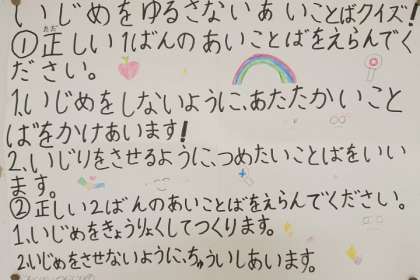 いじめをゆるさない あいことばクイズ!
①正しい1ばんのあいことばをえらんでく
ださい。
1、いじめをしないように、あたたかいこと
ばをかけあいます!
2、いじりをさせるように、つめたいことばをいい
ます。
②正しい2ばんのあいことばをえらんでください。
1、いじめをきょうりょくしてつくります。
2、いじめをさせないように、ちゅういしあいます。